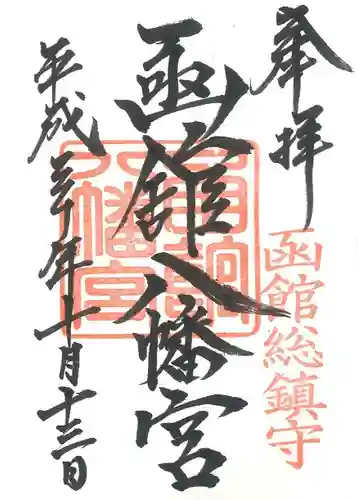 奉拝
函館総鎮守
函館八幡宮
八幡宮
平成三十年十月十三日